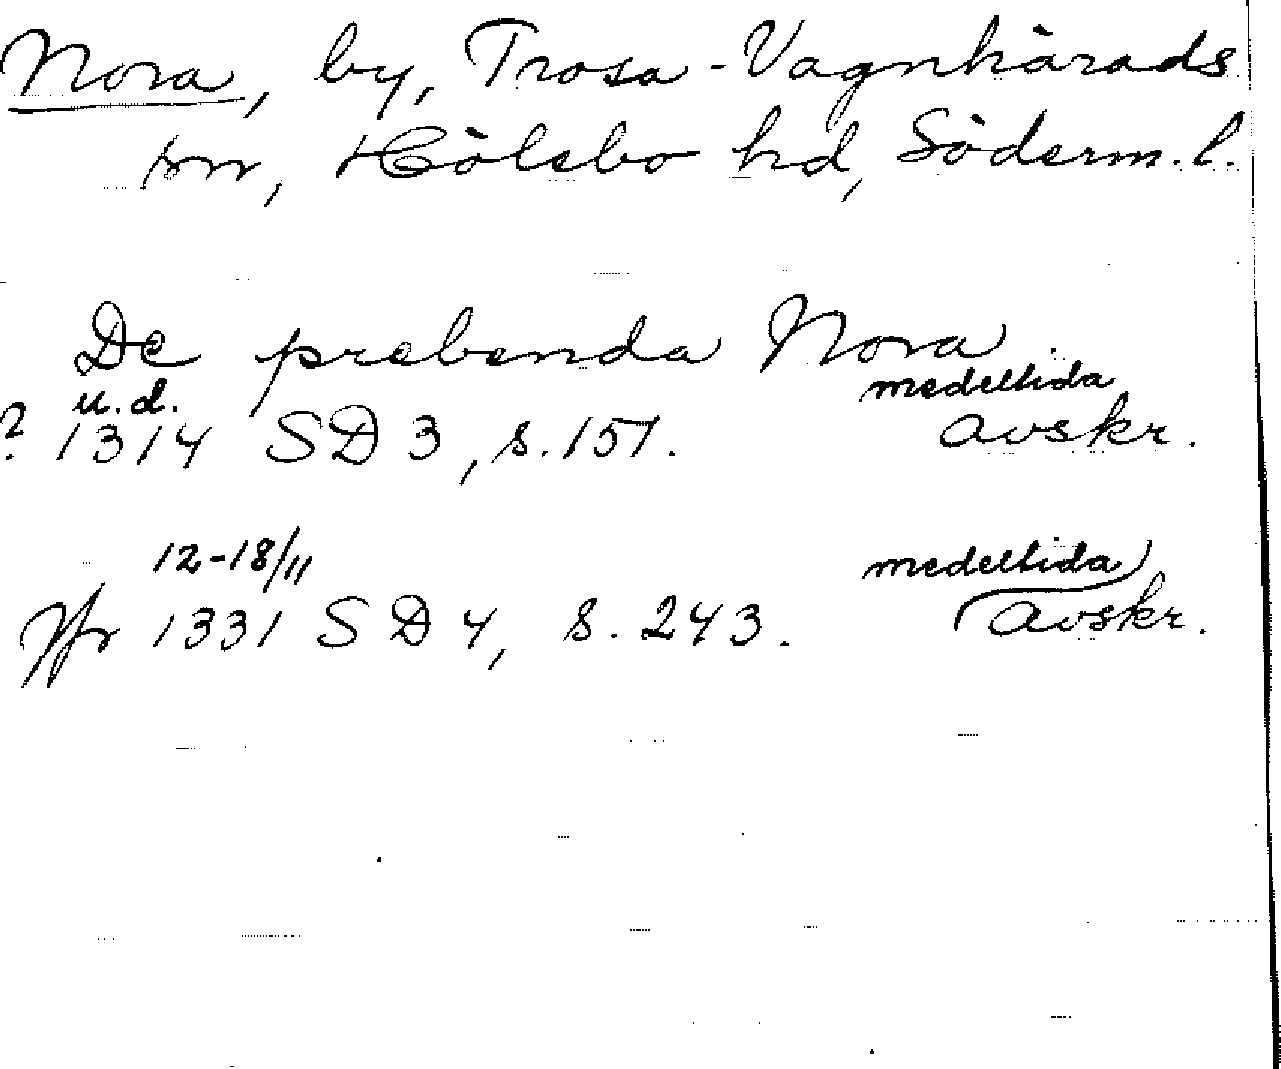 Nora, by, Trosa-Vagnhärads
sn, Hölebo hd, Söderm.l.
De prebenda Nora.
u.d. medeltida
? 1314 SD 3, s. 151. avskr.
12-18/11 medeltida
Jfr 1331 SD 4, s. 243. avskr.